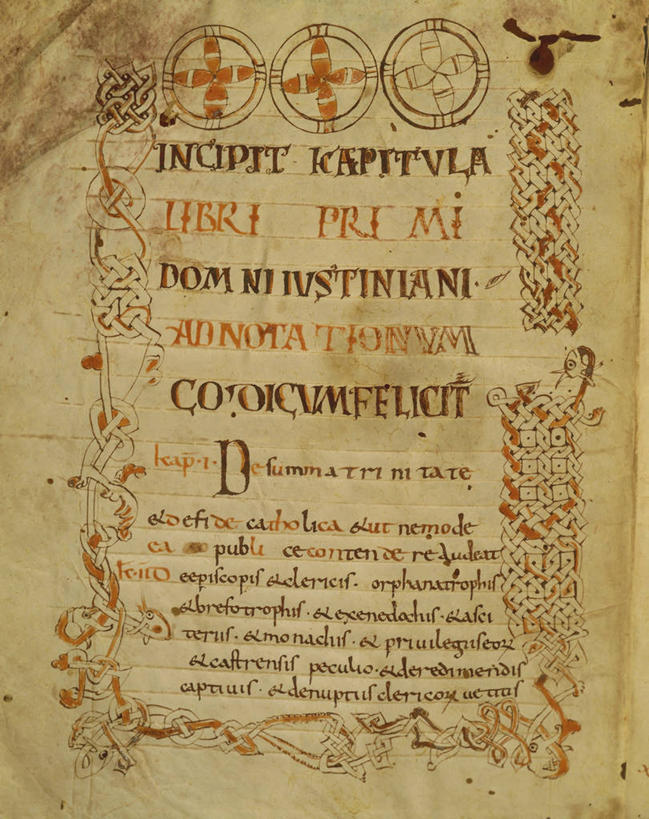 INCIPIT KAPITVLA
LIBRI PRIMI
DOMNI IUSTINIANI·
ADNOTATIONVM
CODICUM FELICIT̄
kap·I· De summa trinitate
& de fide catholica & ut nemo de
ea publice contendere audeat
K·IIO e episcopis & clericis· orphanatrophis
& brefotrophis· & exenedochis· & asci
teriis· & monachis· & privilegiis eoꝝ
& castrensis peculio· & de redimendis
captivis· & de nuptiis clericoꝝ vetitis